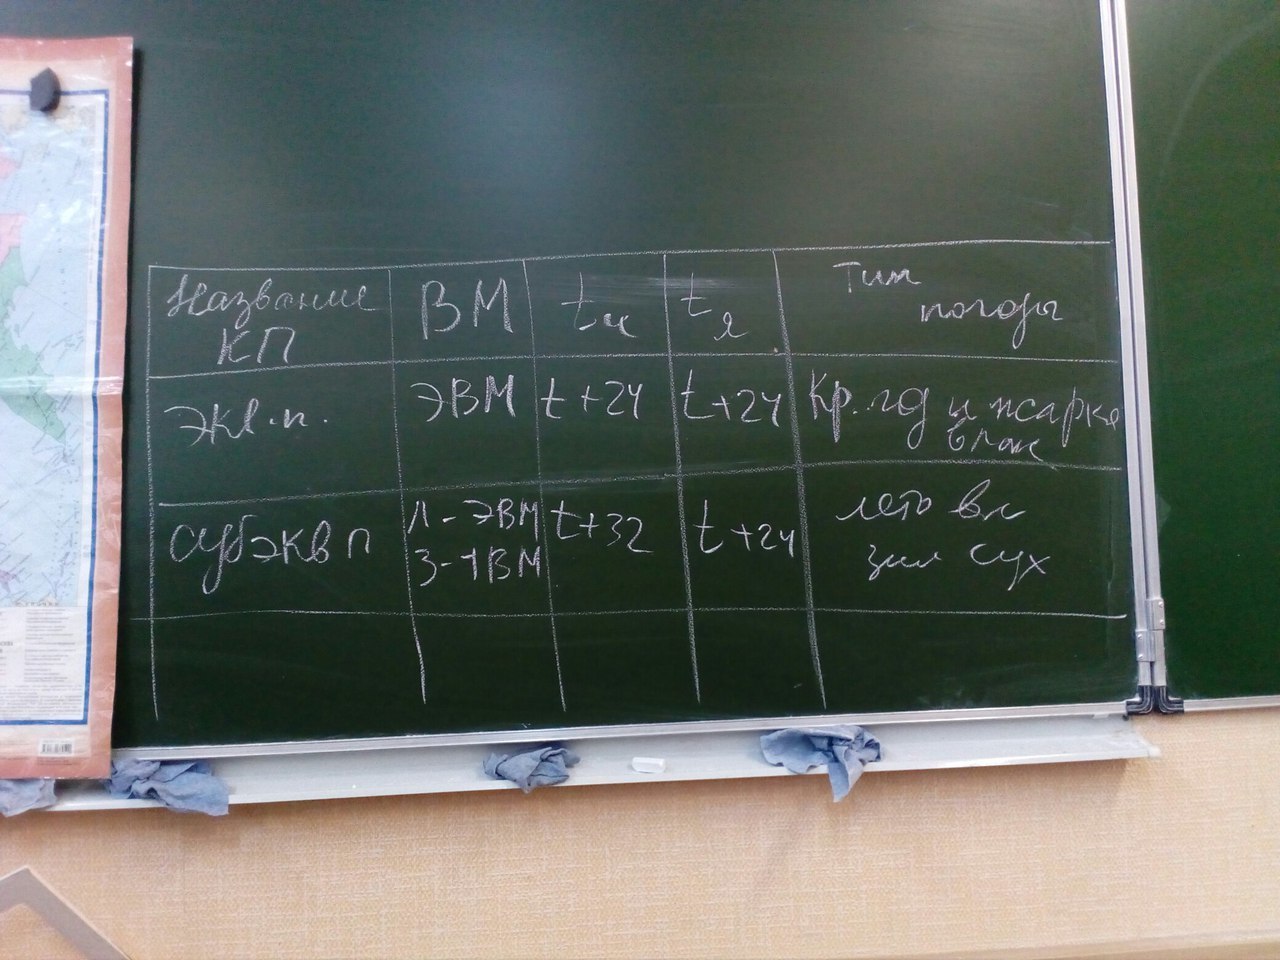 Название КП
ВМ
tи
tя
Тип погоды
Экв.п.
ЭВМ
t+24
t+24
Кр. год и жарко влаж
субэкв п
Л-ЭВМ
З-ТВМ
t+32
t+24
лето вл
зим сух